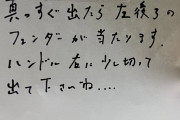 真っすぐ出たら左後ろの
フェンダーが当たります。
ハンドル右に少し切って
出て下さいね....